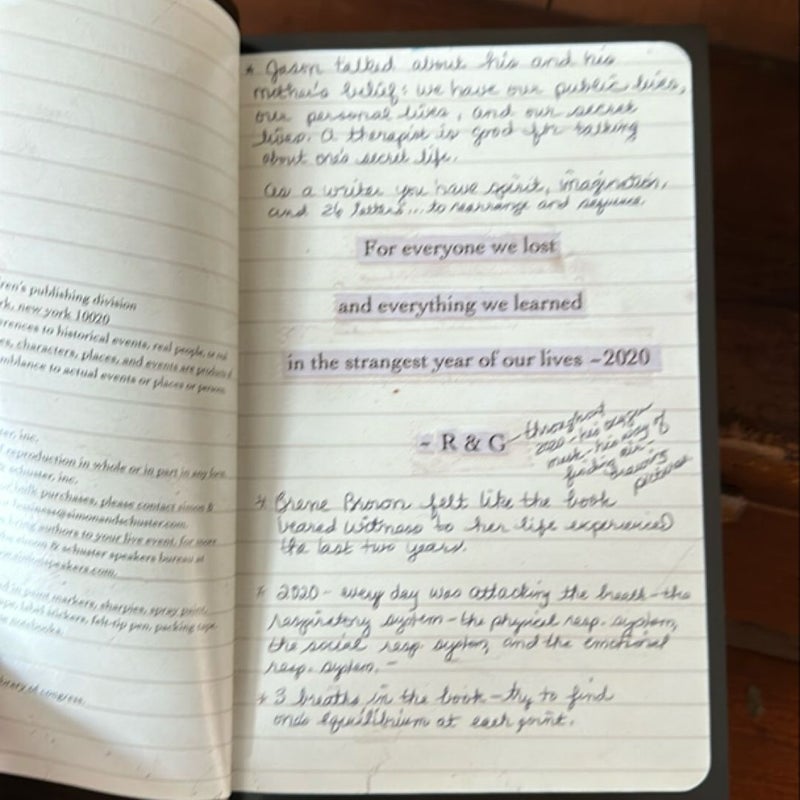 ren's publishing division
rk, new york 10020
rences to historical events, real people, or real
es, characters, places, and events are products of
mblance to actual events or places or persons
ter, inc.
reproduction in whole or in part in any form.
schuster, inc.
bulk purchases, please contact simon &
business@simonandschuster.com.
bring authors to your live event, for more
simon & schuster speakers bureau at
speakers.com.
d in paint markers, sharpies, spray paint,
label stickers, felt-tip pen, packing tape,
notebooks.
library of congress.
* Jason talked about his and his
mother's belief: we have our public lives,
our personal lives, and our secret
lives. A therapist is good for talking
about one's secret life.
As a writer you have spirit, imagination,
and 26 letters... to rearrange and
For everyone we lost
and everything we learned
in the strangest year of our lives –2020
~ R & G
throughout
2020 - his oxygen
mask - his way of
finding air -
drawing
pictures
* Brene Brown felt like the book
beared witness to her life experienced
the last two years.
* 2020 - every day was attacking the breath - the
respiratory system - the physical resp. system,
the social resp. system, and the emotional
resp. system. -
* 3 breaths in the book - try to find
one's equilibrium at each point.